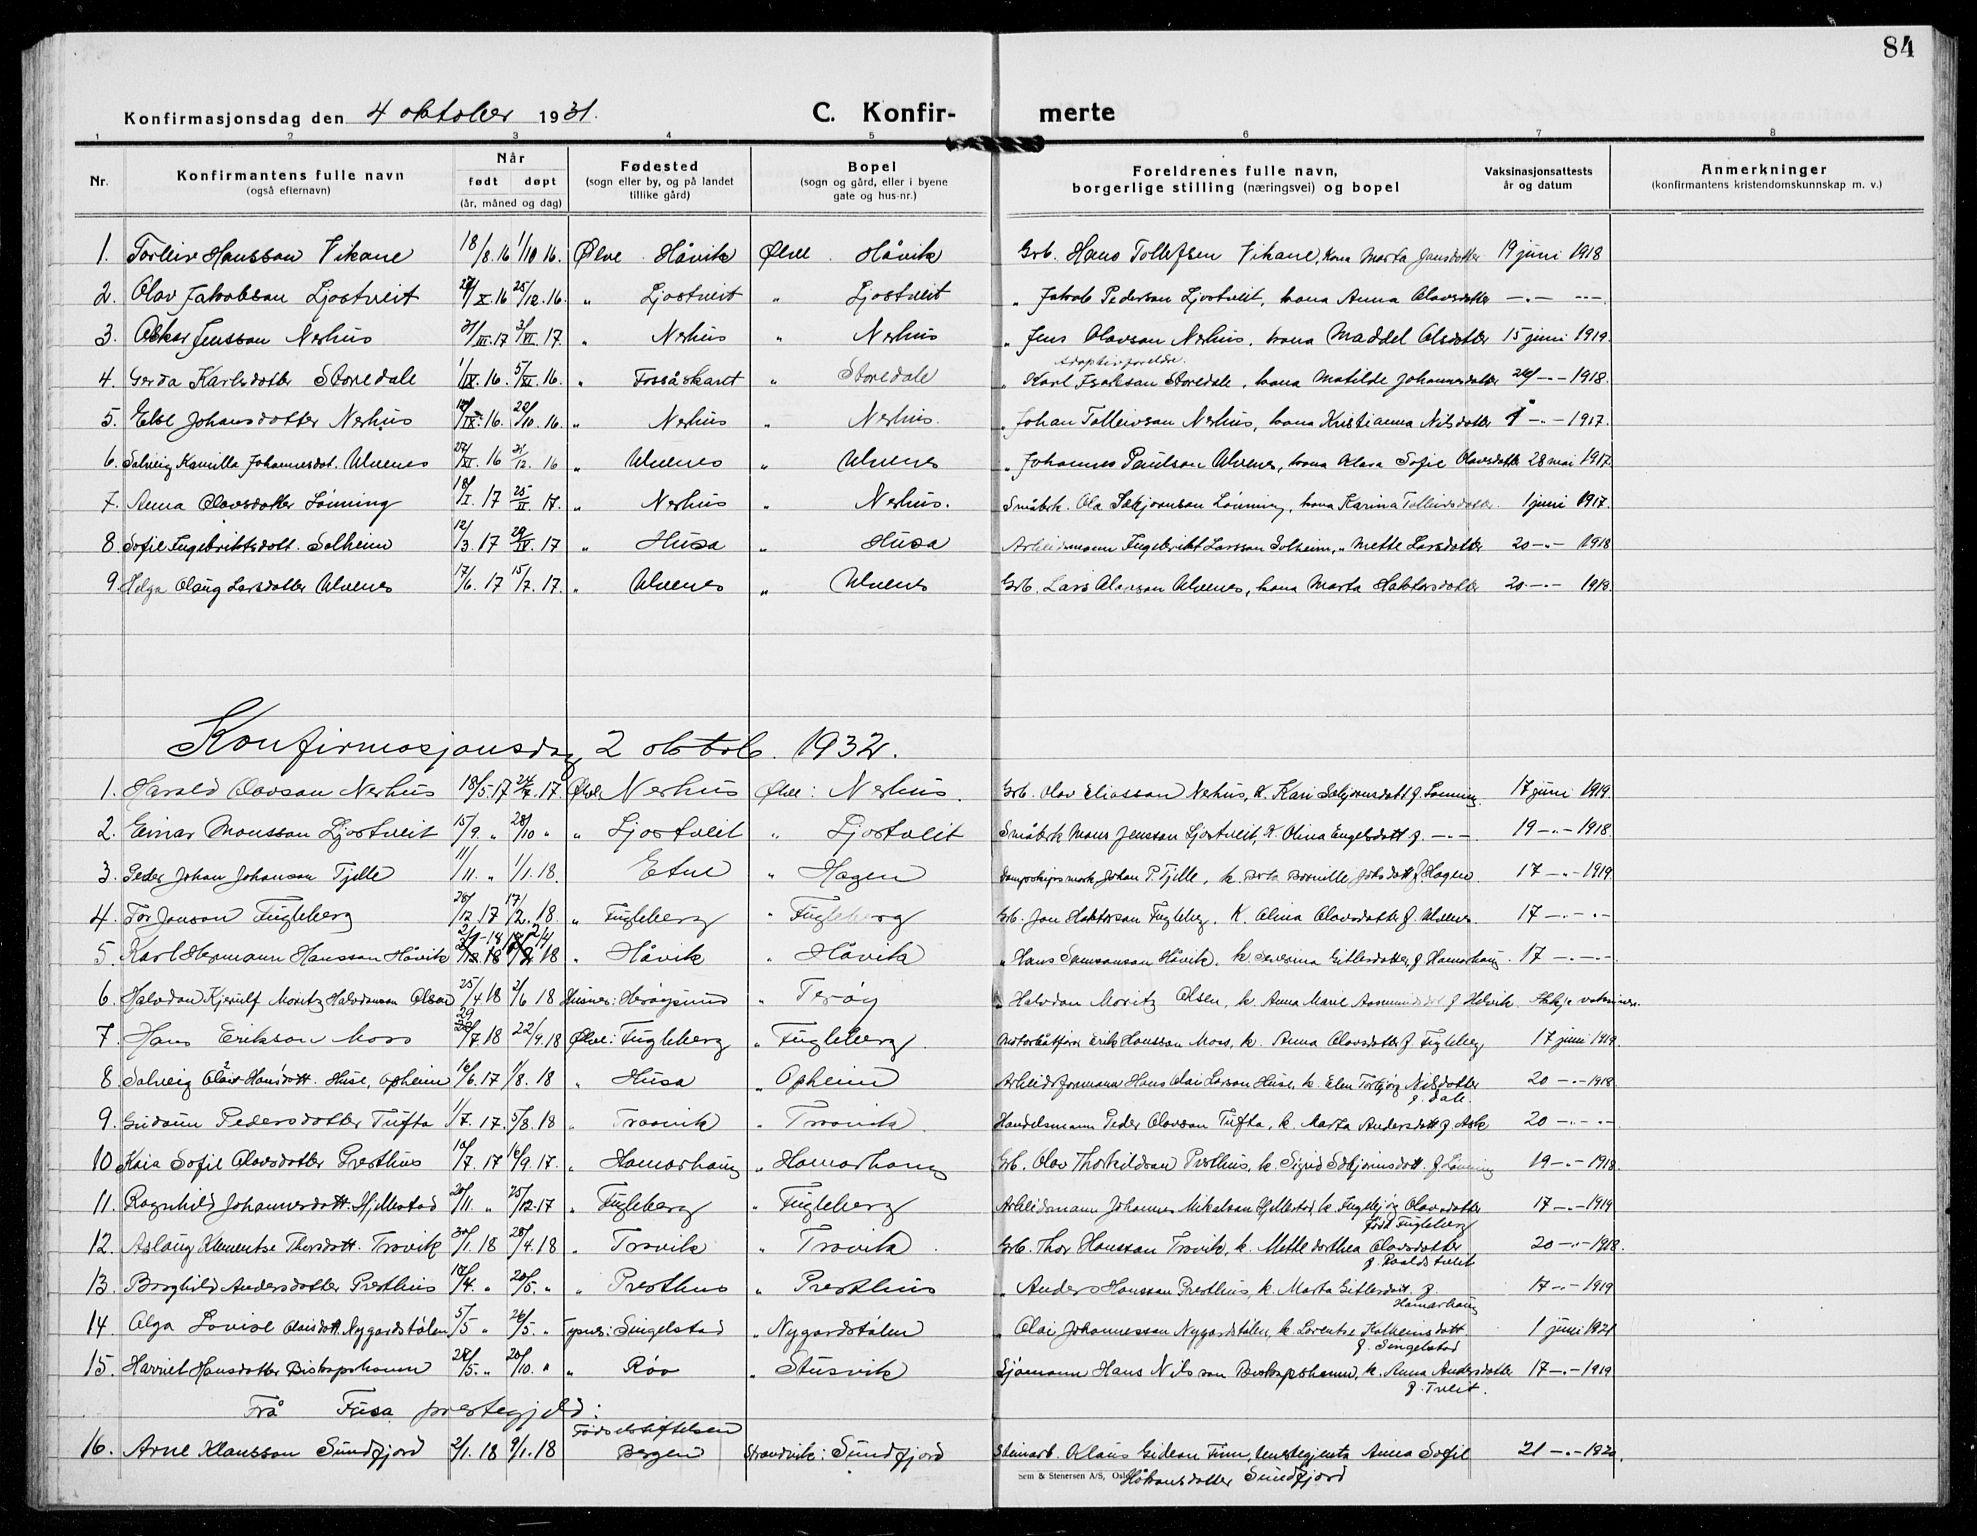 84
Konfirmasjonsdag den 4 oktober 1931.
C. Konfir- merte
1 2 3 4 5 6 7 8
Nr. Konfirmantens fulle navn (også efternavn) Når født døpt (år, måned og dag) Fødested (sogn eller by, og på landet tillike gård) Bopel (sogn og gård, eller i byene gate og hus-nr.) Foreldrenes fulle navn, borgerlige stilling (næringsvei) og bopel Vaksinasjonsattests år og datum Anmerkninger (konfirmantens kristendomskunnskap m. v.)
1. Torleiv Hansson Vikane 18/8.16 1/10 16. Ølve Håvik Ølve Håvik Grb. Hans Tollefsen Vikane, kona Marta Jansdotter 19 juni 1918
2. Olav Jakobson Ljostveit /X.16 25/12.16. " Ljostveit " Ljostveit " Jakob Pederson Ljostveit, kona Anna Olavsdotter -.- ---
3. Oskar Jensson Nerhus 31/III.17 3/VI.17. " Nerhus " Nerhus " Jens Olavson Nerhus, kona Maddel Olsdotter 15 juni 1919.
Adoptivforeldr.
4. Gerda Karlsdotter Storedale 1/IX.16. 5/XI.16. " Fossåskaret " Storedale " Karl Isakson Storedale, kona Matilde Johannesdotter 26/ -.- 1918.
5. Else Johansdotter Nerhus /IX.16. /10.16. " Nerhus " Nerhus. " Johan Tolleivson Nerhus, kona Kristianna Nilsdotter -.- 1917.
6. Solveig Kamilla Johannesdot. Alvenes /XI.16 31/12.16 " Alvenes " Alvenes " Johannes Paulson Alvenes, kona Klara Sofie Olavsdotter 28 mai 1917.
7. Anna Olavsdotter Lønning 18/I.17 25/II.17. " Nerhus " Nerhus. Småbrk. Ola Sebjørnson Lønning, kona Karina Tolleivsdotter. 1 juni 1917.
8 Sofie Ingebriktsdott. Solheim 12/3.17 29/IV.17 " Husa " Husa Arbeidsmann Ingebrikt Larsson Solheim, " Mette Larsdotter 20 -.- 1918
9. Helga Olaug Larsdotter Alvenes 17/6.17 15/7.17. " Alvenes " Alvenes Grb. Lars Olavson Alvenes, kona Marta Haktorsdotter 20 -.- 1918.
Konfirmasjonsdag 2 oktob. 1932.
1. Harald Olavson Nerhus 18/5.17 24/.17. Ølve Nerhus Ølve: Nerhus. Grb. Olav Eliasson Nerhus, k. Kari Sebjørnsdott f. Lønning 17 juni 1919.
2. Einar Monsson Ljostveit 15/9. " 28/10 " " Ljostveit " Ljostveit Småbrk Mons Jensson Ljostveit, k. Olina Engelsdott f. -.- 19 -.- 1918.
3. Peder Johan Johanson Tjelle 11/11. " 1/1.18. Etne " Hagen Johan P. Tjelle, k. f. Hagen. 17 -.- 1919.
4. Tor Janson Fugleberg /12.17 17/2.18. " Fugleberg " Fugleberg Grb. Jon Haktorson Fugleberg. K. Olina Olavsdotter f. Alvenes 17 -.- -.-
5. Karl Hermann Hansson Håvik 18 " Håvik " Håvik " Hans Samsonson Håvik, k. Severina Gitlesdotter f Hamarhaug. 17 -.-.-
6. Halvdan Kjerulf Moritz Halvdanson Olsen 25/4 18 2/6 18 Husnes: Herøysund " Terøy " Halvdan Moritz Olsen, k. Anna Marie f Helvik Ikkje vaksiner.
7 Hans Erikson Moss 29/7.18 22/9.18 Ølve: Fugleberg " Fugleberg. Motorbåtfører Erik Hansson Moss, k. Anna Olavsdotter f Fugleberg 17 juni 1919
8 Solveig Hansdott. Huse, Opheim 16/6.17 1/8.18 " Husa " Opheim Arbeidsformann Hans Olai Larson Huse, k. Elen Torbjørg Nilsdotter f. Dale 20 -.- 1918
9. Gudrun Pedersdotter Tufta 1/7.17. 5/8.18 " Trovik " Trovik. Handelsmann Peder Olavson Tufta, k. Marta Andersdott f Ask 20 -.- -.-
10 Kaia Sofie Olavsdotter Presthus /7.17 16/9.17. " Hamarhaug " Hamarhaug Grb. Olav Thorkildson Presthus, k. Sigrid Sebjørnsdott. f Lønning 19 -.- 1918.
11. Ragnhild Johannesdott. Hjellestad 20/11. " 25/12.17 " Fugleberg " Fugleberg Arbeidsmann Johannes Mikalson Hjellestad, k. Ingebjørg Olavsdotter født Fugleberg 17 -.- 1919
12. Aslaug Klementse Thorsdott. Trovik 30/1.18 28/4.18 " Trovik " Trovik. Grb. Thor Hansson Trovik, k. Mette Dorthea Olavsdotter f. Roaldstveit 20 -.- 1918.
13. Borghild Andersdotter Presthus 10/4. " 20/5. " " Presthus " Presthus " Anders Hansson Presthus, k. Marta Gitlesdott. f. Hamarhaug 17 -.- 1919
14. Olga Lovise Olaisdott. Nygardstølen 5/5 " 26/5. " Tysnes: Singelstad " Nygardstølen " Olai Johannesson Nygardstølen, k. Lorentse Kolbeinsdott f. Singelstad 1 juni 1921
15. Harriet Hansdotter Biskopshamn /5. " 20/10. " " Røo " Stusvik Sjømann Hans Nilsson Biskopshamn, k. Anna Andersdotter f. Tveit. 17 -.- 1919
Frå Fusa prestegjeld:
16. Arne Klausson Sundfjord 2/1.18 9/1.18 Fødselsstiftelsen Bergen Strandvik: Sundfjord Steinarb. Klaus Gideon Finn, ungegjenta Anna Sofie Håkonsdotter Sundfjord 21 -.- 1920.
Sem & Stenersen A/S, Oslo